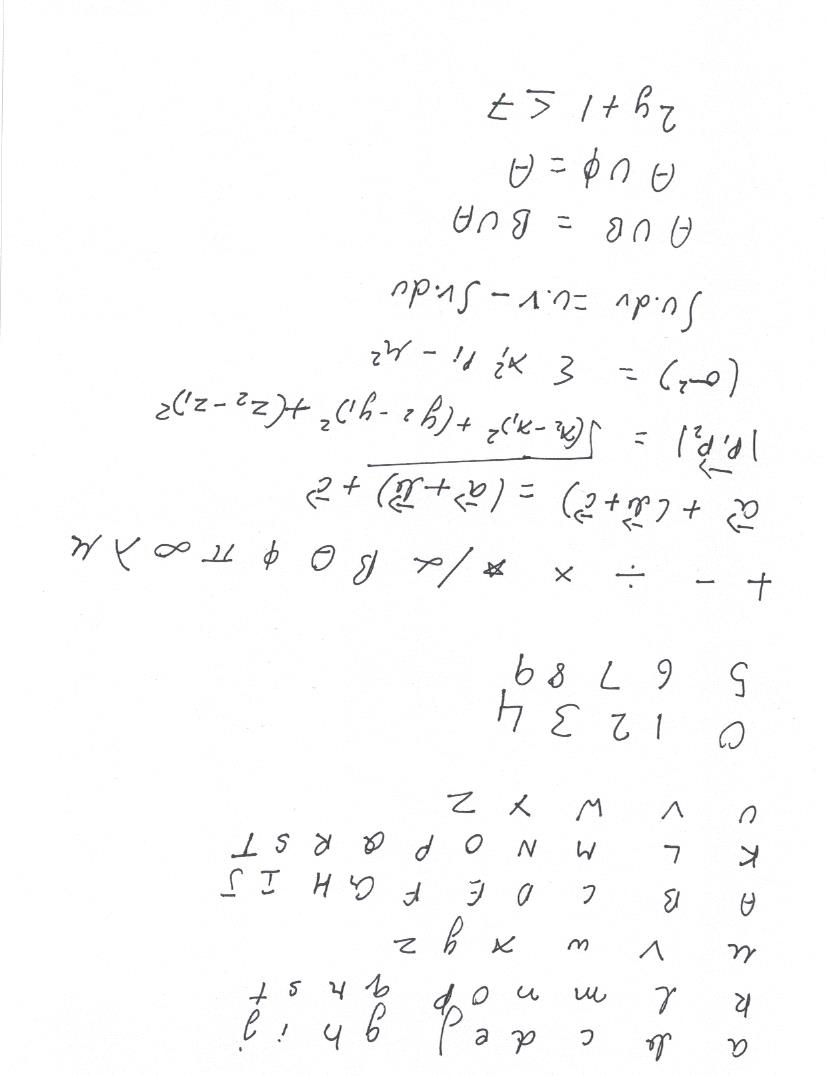 a b c d e f g h i j
k l m n o p q r s t
u v w x y z
A B C D E F G H I J
K L M N O P Q R S T
U V W X Z
0 1 2 3 4
5 6 7 8 9
+ - ÷ × * / α β θ φ π ∞ λ μ
a⃗ + (b⃗ + c⃗) = (a⃗ + b⃗) + c⃗
|P₁P₂| = √(x₂-x₁)² + (y₂-y₁)² + (z₂-z₁)²
(σ²) = Σ xᵢ² Pᵢ - μ²
∫u.dv = u.v - ∫v.du
A ∪ B = B ∪ A
A ∪ φ = A
2y + 1 ≤ 7